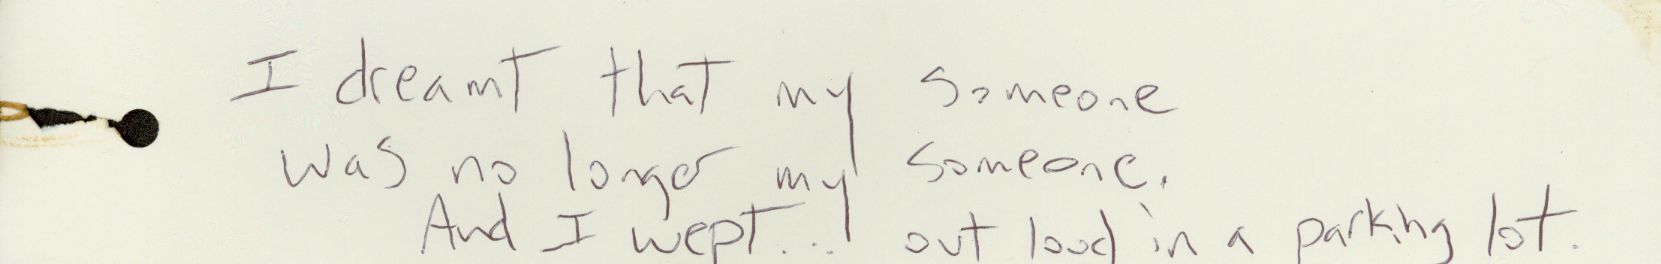 I dreamt that my someone
was no longer my someone.
And I wept... out loud in a parking lot.